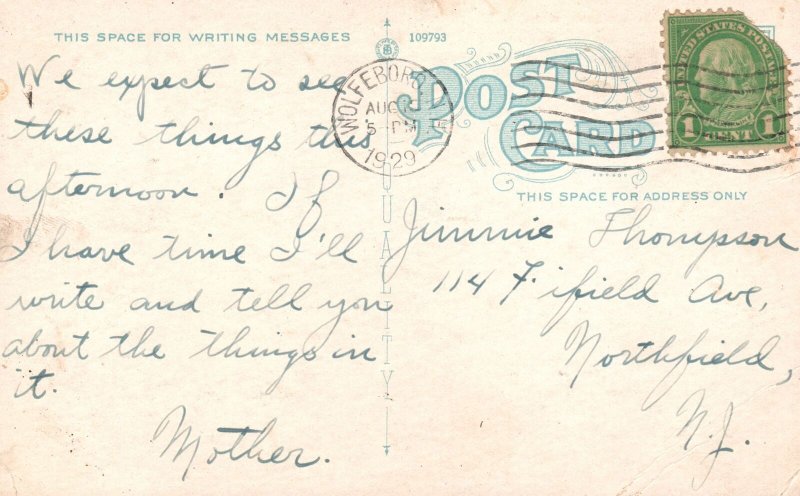 THIS SPACE FOR WRITING MESSAGES
109793
We expect to see
these things this
afternoon. If
I have time I'll
write and tell you
about the things in
it.
Mother.
WOLFEBORO
AUG
5-PM
1929
POST
CARD
THIS SPACE FOR ADDRESS ONLY
UNITED STATES POSTAGE
1 CENT 1
QUALITY
Jimmie Thompson
114 Fifield Ave,
Northfield,
N.J.